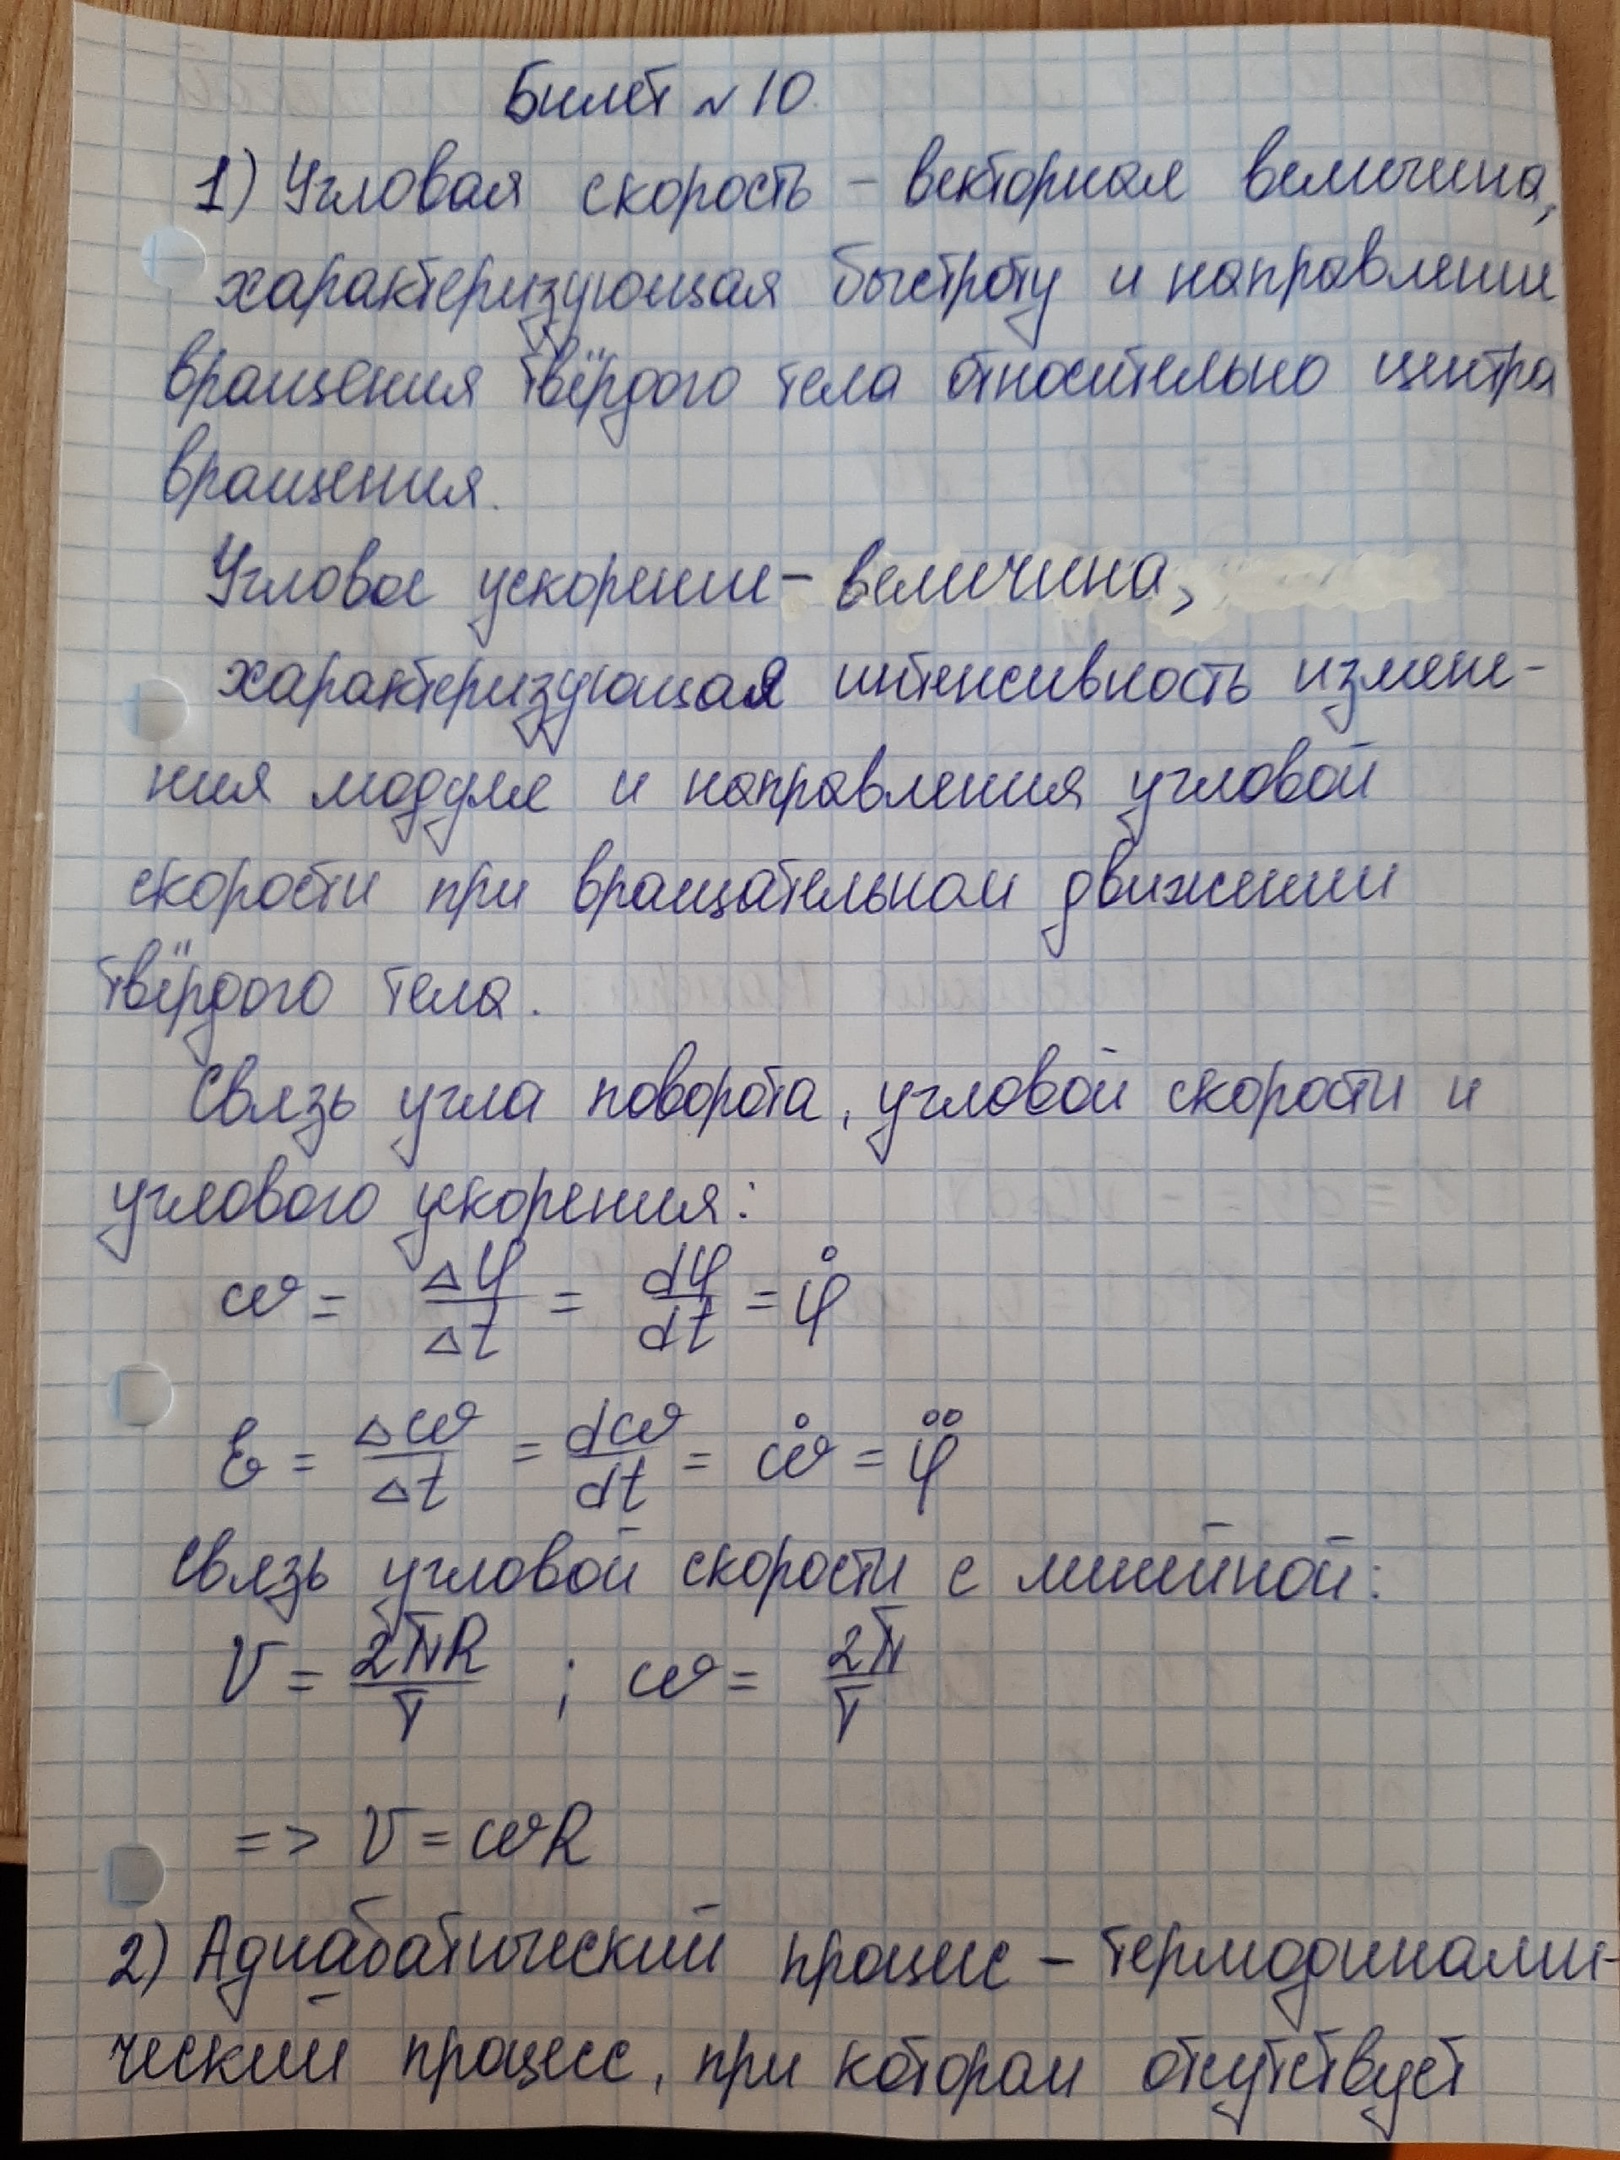 Билет № 10.
1) Угловая скорость – векторная величина,
характеризующая быстроту и направление
вращения твёрдого тела относительно центра
вращения.
Угловое ускорение – величина,
характеризующая интенсивность измене-
ния модуля и направления угловой
скорости при вращательном движении
твёрдого тела.
Связь угла поворота, угловой скорости и
углового ускорения:
ω = Δφ/Δt = dφ/dt = φ̇
ε = Δω/Δt = dω/dt = ω̇ = φ̈
Связь угловой скорости с линейной:
V = 2πR/T ; ω = 2π/T
=> V = ωR
2) Адиабатический процесс – термодинами-
ческий процесс, при котором отсутствует